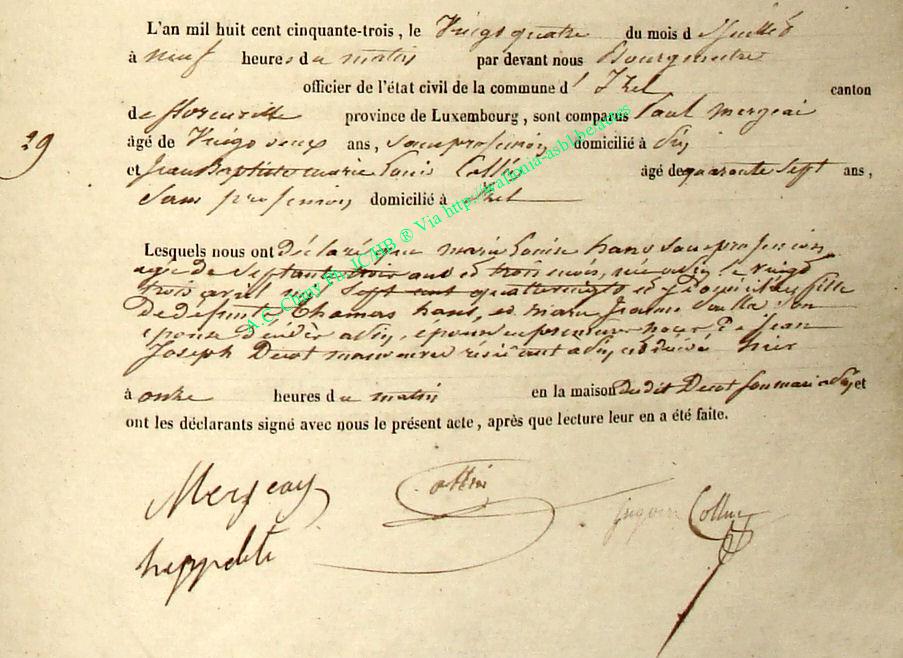 L'an mil huit cent cinquante-trois, le Vingt quatre du mois d
à neuf heures du matin par devant nous Bourgmestre
officier de l'état civil de la commune d' Izel canton
de florenville province de Luxembourg, sont comparus Paul mergeai
29 âgé de Vingt deux ans, Sans profession domicilié à
et Jean Baptiste marie Louis âgé de quarante Sept ans,
Sans profession domicilié à Izel
Lesquels nous ont déclaré que marie Louise hans Sans profession
agée de Septante trois ans et trois mois, née le vingt
trois avril mil Sept cent quatrevingts et y domiciliée, fille
de defunts Thomas hans, et marie Jeanne Son
epouse décédés, épouse en premières noces De Jean
Joseph Decot manœuvre résident est décédé hier
à onze heures du matin en la maison dudit Decot Son mari et
ont les déclarants signé avec nous le présent acte, après que lecture leur en a été faite.
Mergeay Collin
hippolite
A.C. Chiny Ph. JCHB ® Via http://grafionia-asbl.be.actes